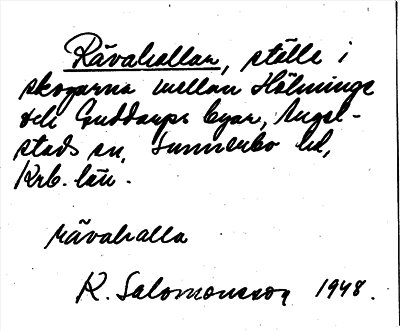 Rävahallan, ställe i
skogarna mellan Hölminge
och Guddarps byar, Angel-
stads sn, Sunnerbo hd,
Krb. län.
rävahalla
R. Salomonsson 1948.